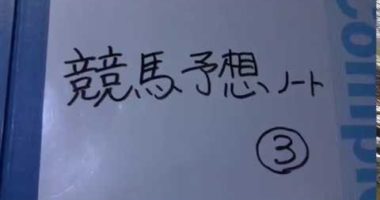 競馬予想ノート
③